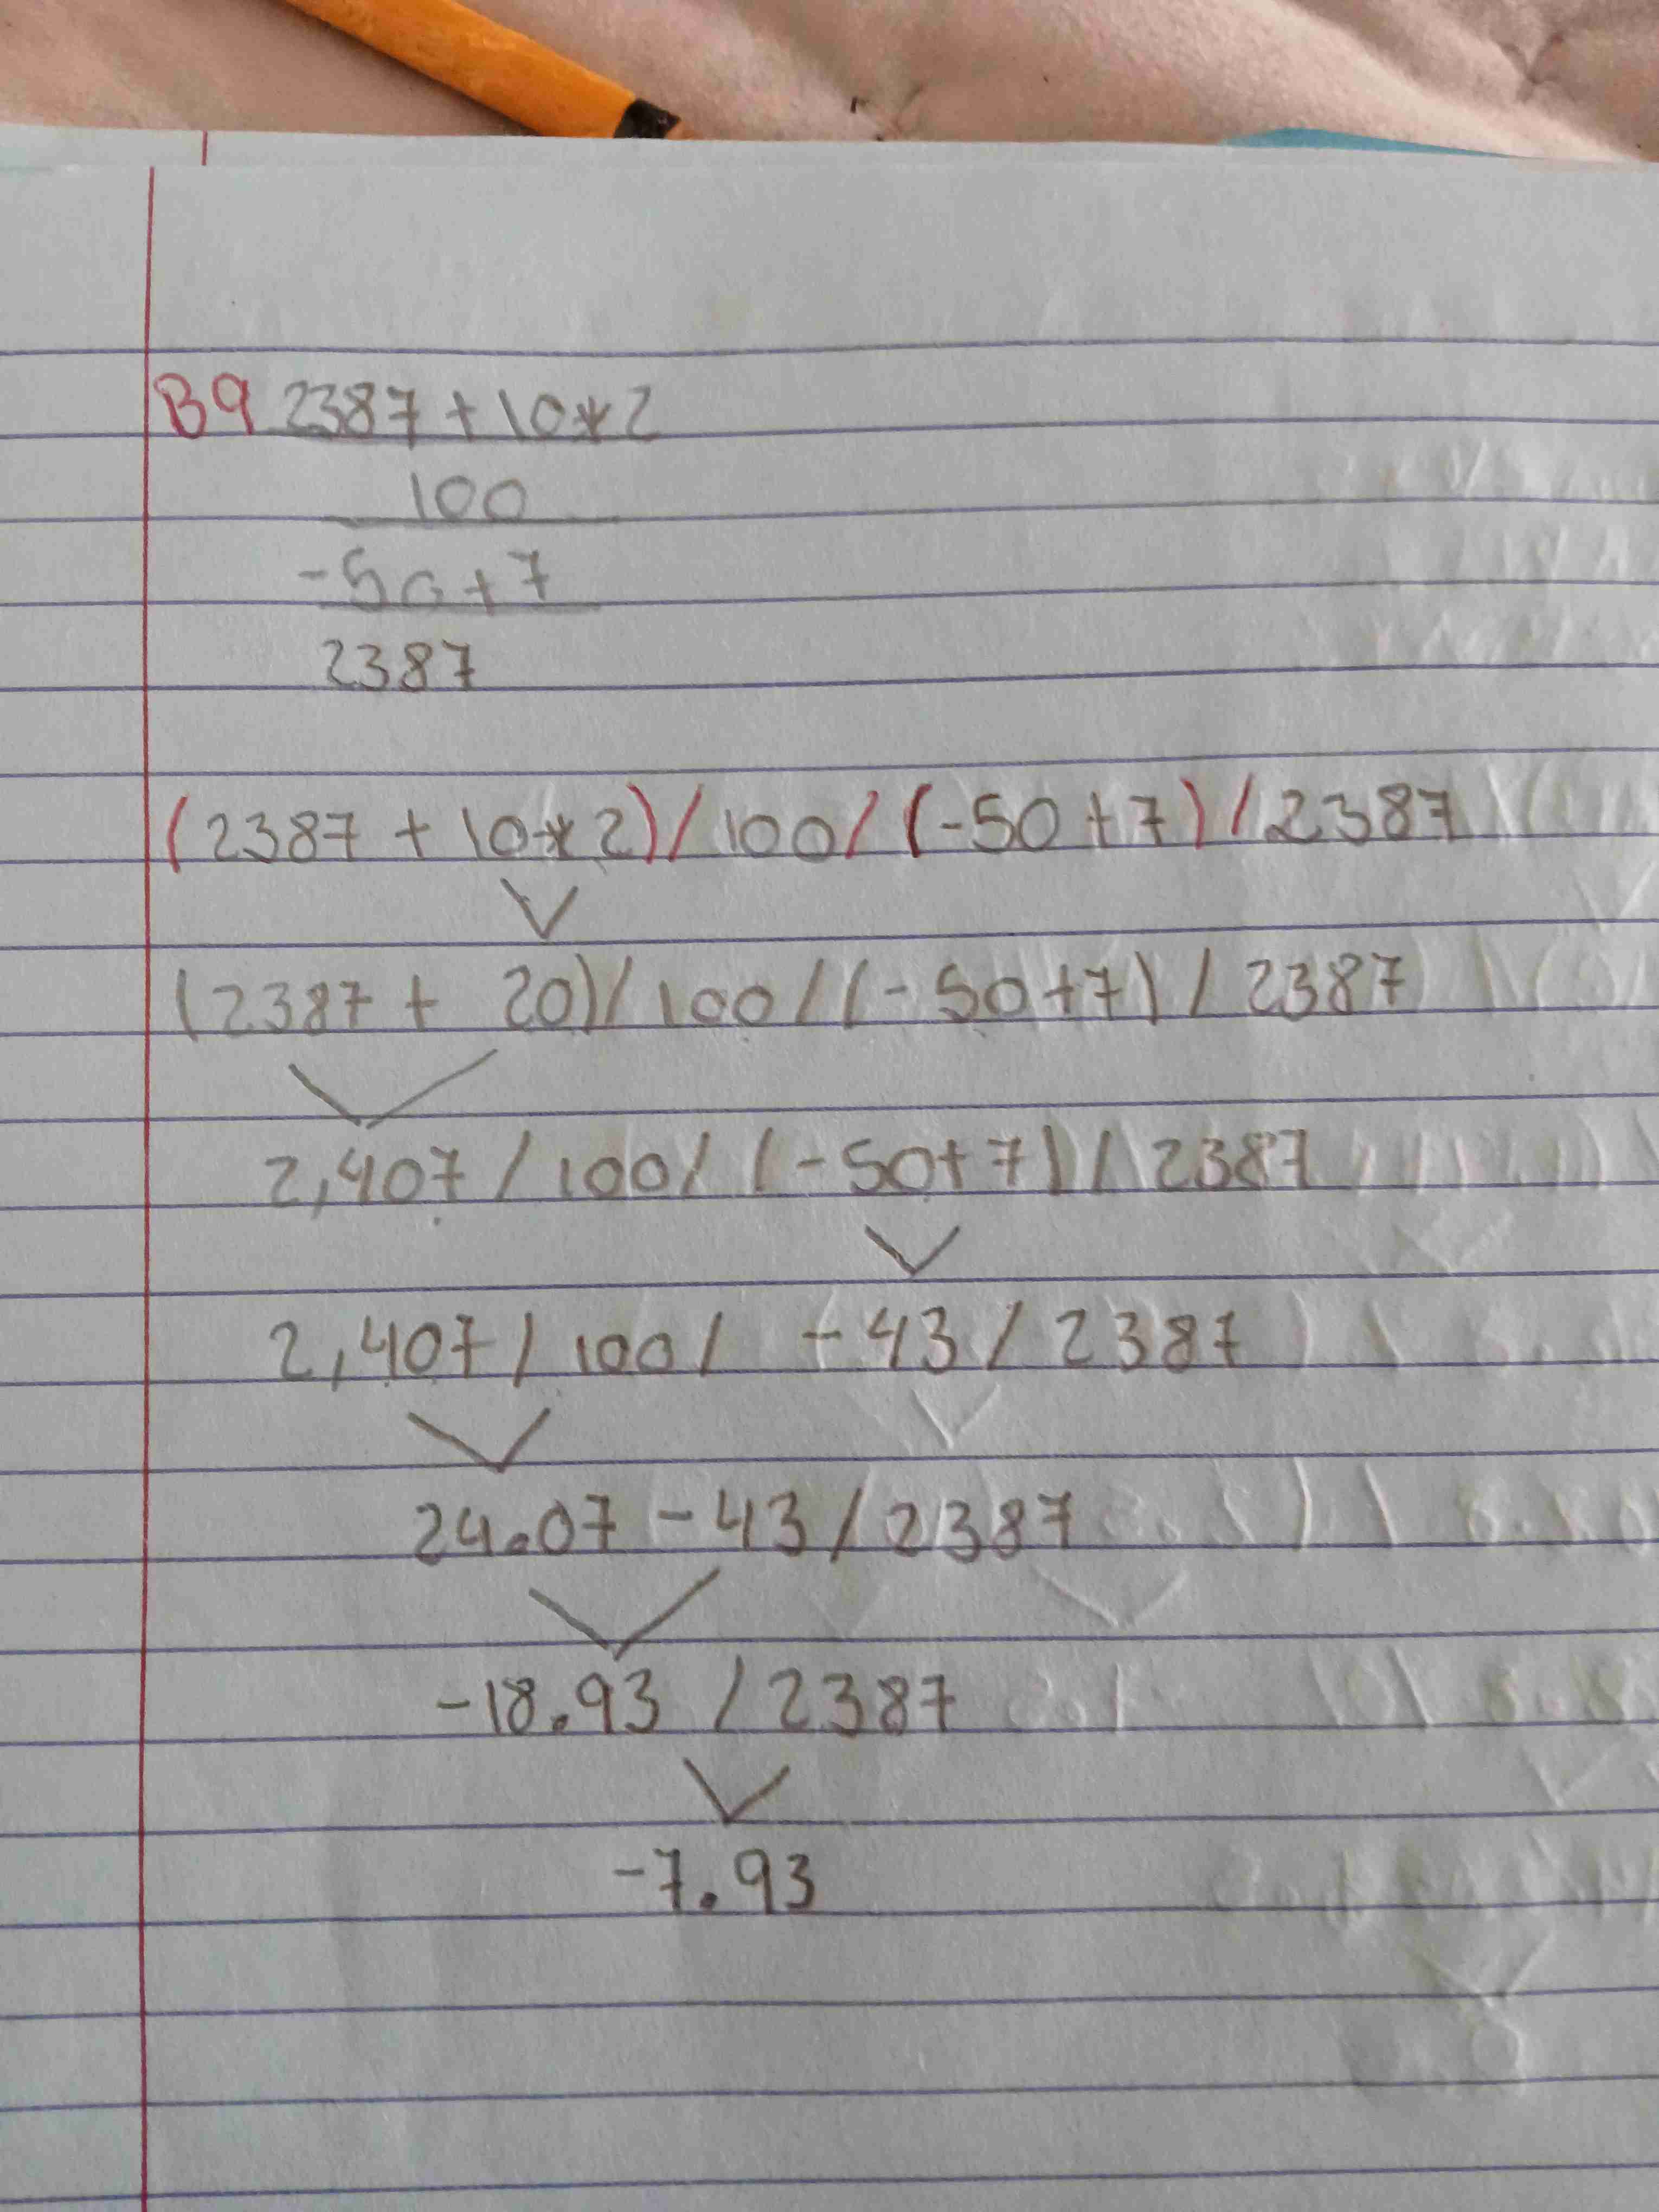 B9 2387 + 10*2
100
-50+7
2387
(2387 + 10*2)/100/(-50+7)/2387
(2387 + 20)/100/(-50+7)/2387
2,407/100/(-50+7)/2387
2,407/100/ -43/2387
24.07 -43/2387
-18.93 / 2387
-7.93